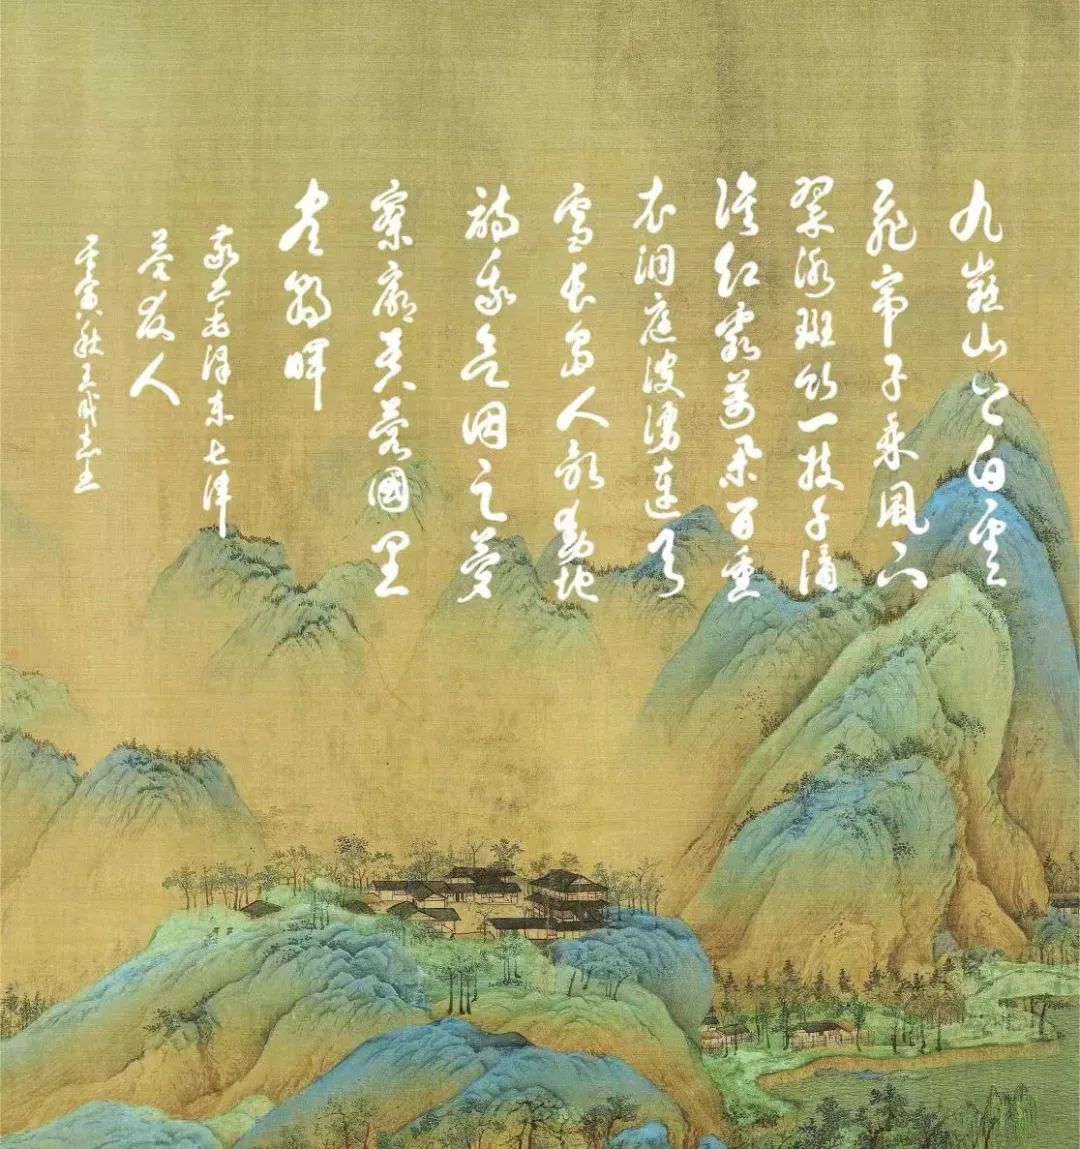 九嶷山上白雲
飛帝子乘風下
翠微斑竹一枝千滴
淚红霞萬朵百重
衣洞庭波湧連天
雪長島人歌動地
詩我欲因之夢
寥廓芙蓉國里
尽朝晖
毛泽东七律
答友人
壬寅秋